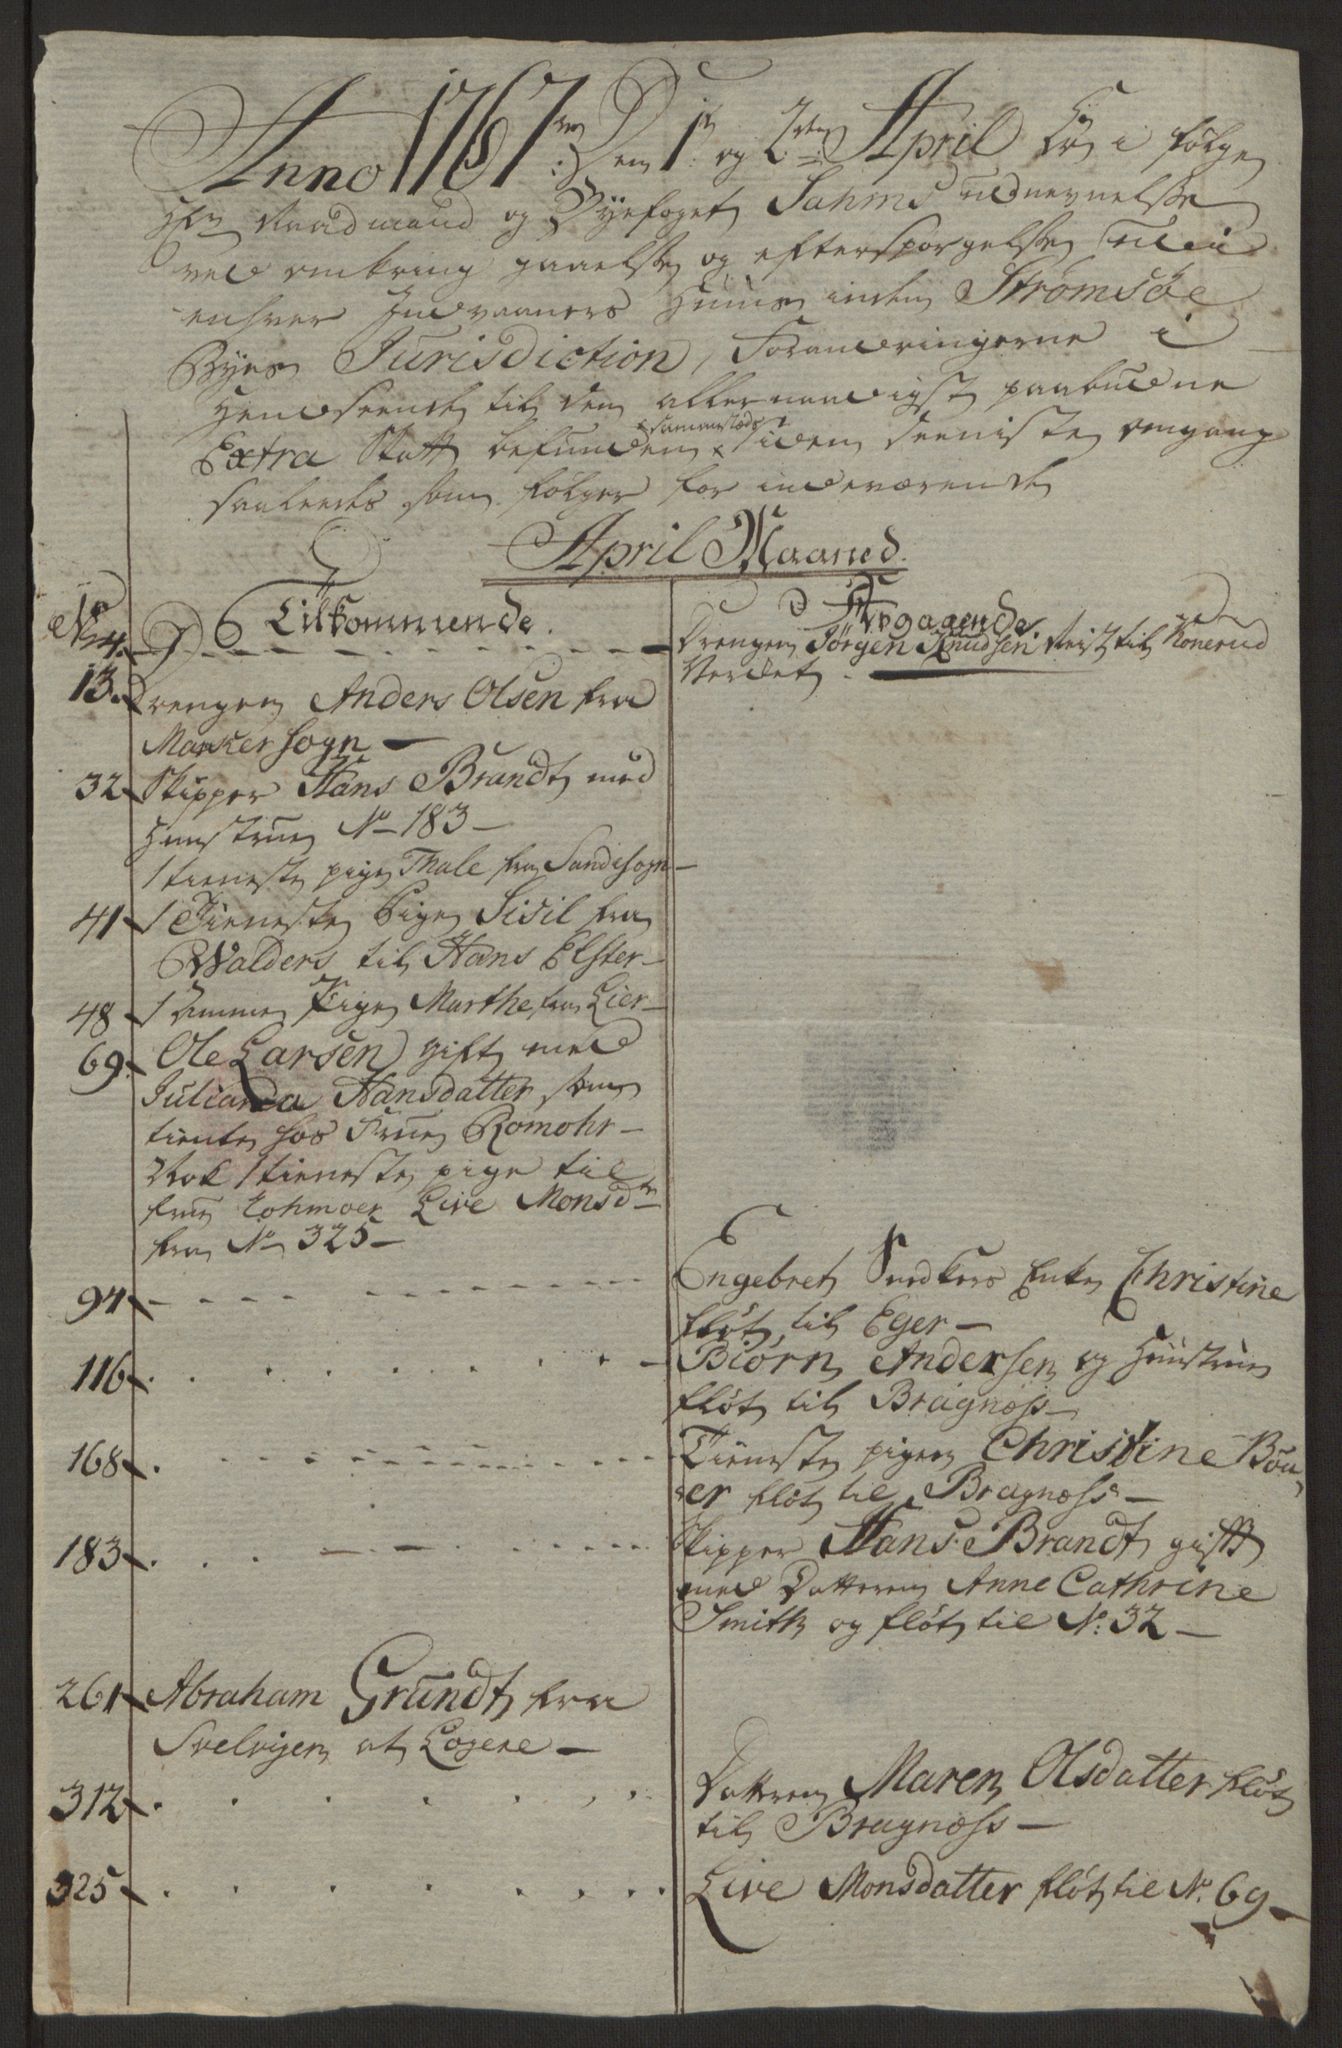 Anno 1767 Den 1te og 2den April Er i følge
Hr Raadmand og Byefoget Sahms udnevnelse
ved omkring gaaelse og efterspørgelse udi
enhver Indvaaners Huus inden Strömsöe
Byes Jurisdiction, Forandringerne i
Henseende til den allernaadigst paabudne
Extra Skatt befunden sammestæds siden seeniste omgang
saaledes som følger for indeværende
April Maaned.
No Tilkommende. Afgaaende
4. Drengen Jörgen Knudsen Reist til Konerud
Verket
13. Drengen Anders Olsen fra
Marker Sogn
32 Skipper Hans Brandt med
Hustrue No 183
1 tieneste pige Thale fra Sande Sogn
41 1 Tieneste Pige Sisil fra
Walders til Hans Elster
48 1 Amme Pige Marthe fra Lier
69. Ole Larsen gift med
Julianda Hansdatter som
tiente hos Frue Romohr
Nok 1 tieneste pige til
frue Lohmoer Live Monsdtr
fra No 325
94 Engebret Snedkers Enke Christine
fløt til Eger
116 Biörn Andersen og Hustrue
fløt til Bragnæss
168 Tieneste pigen Christine Böu
er fløt til Bragnæss
183 Skipper Hans Brandt gifft
med Datteren Anne Cathrine
Smith og fløt til No. 32
261 Abraham Grundt fra
Svelvigen at Logere
312 Datteren Maren Olsdatter fløt
til Bragnæss
325 Live Monsdatter fløt til No. 69